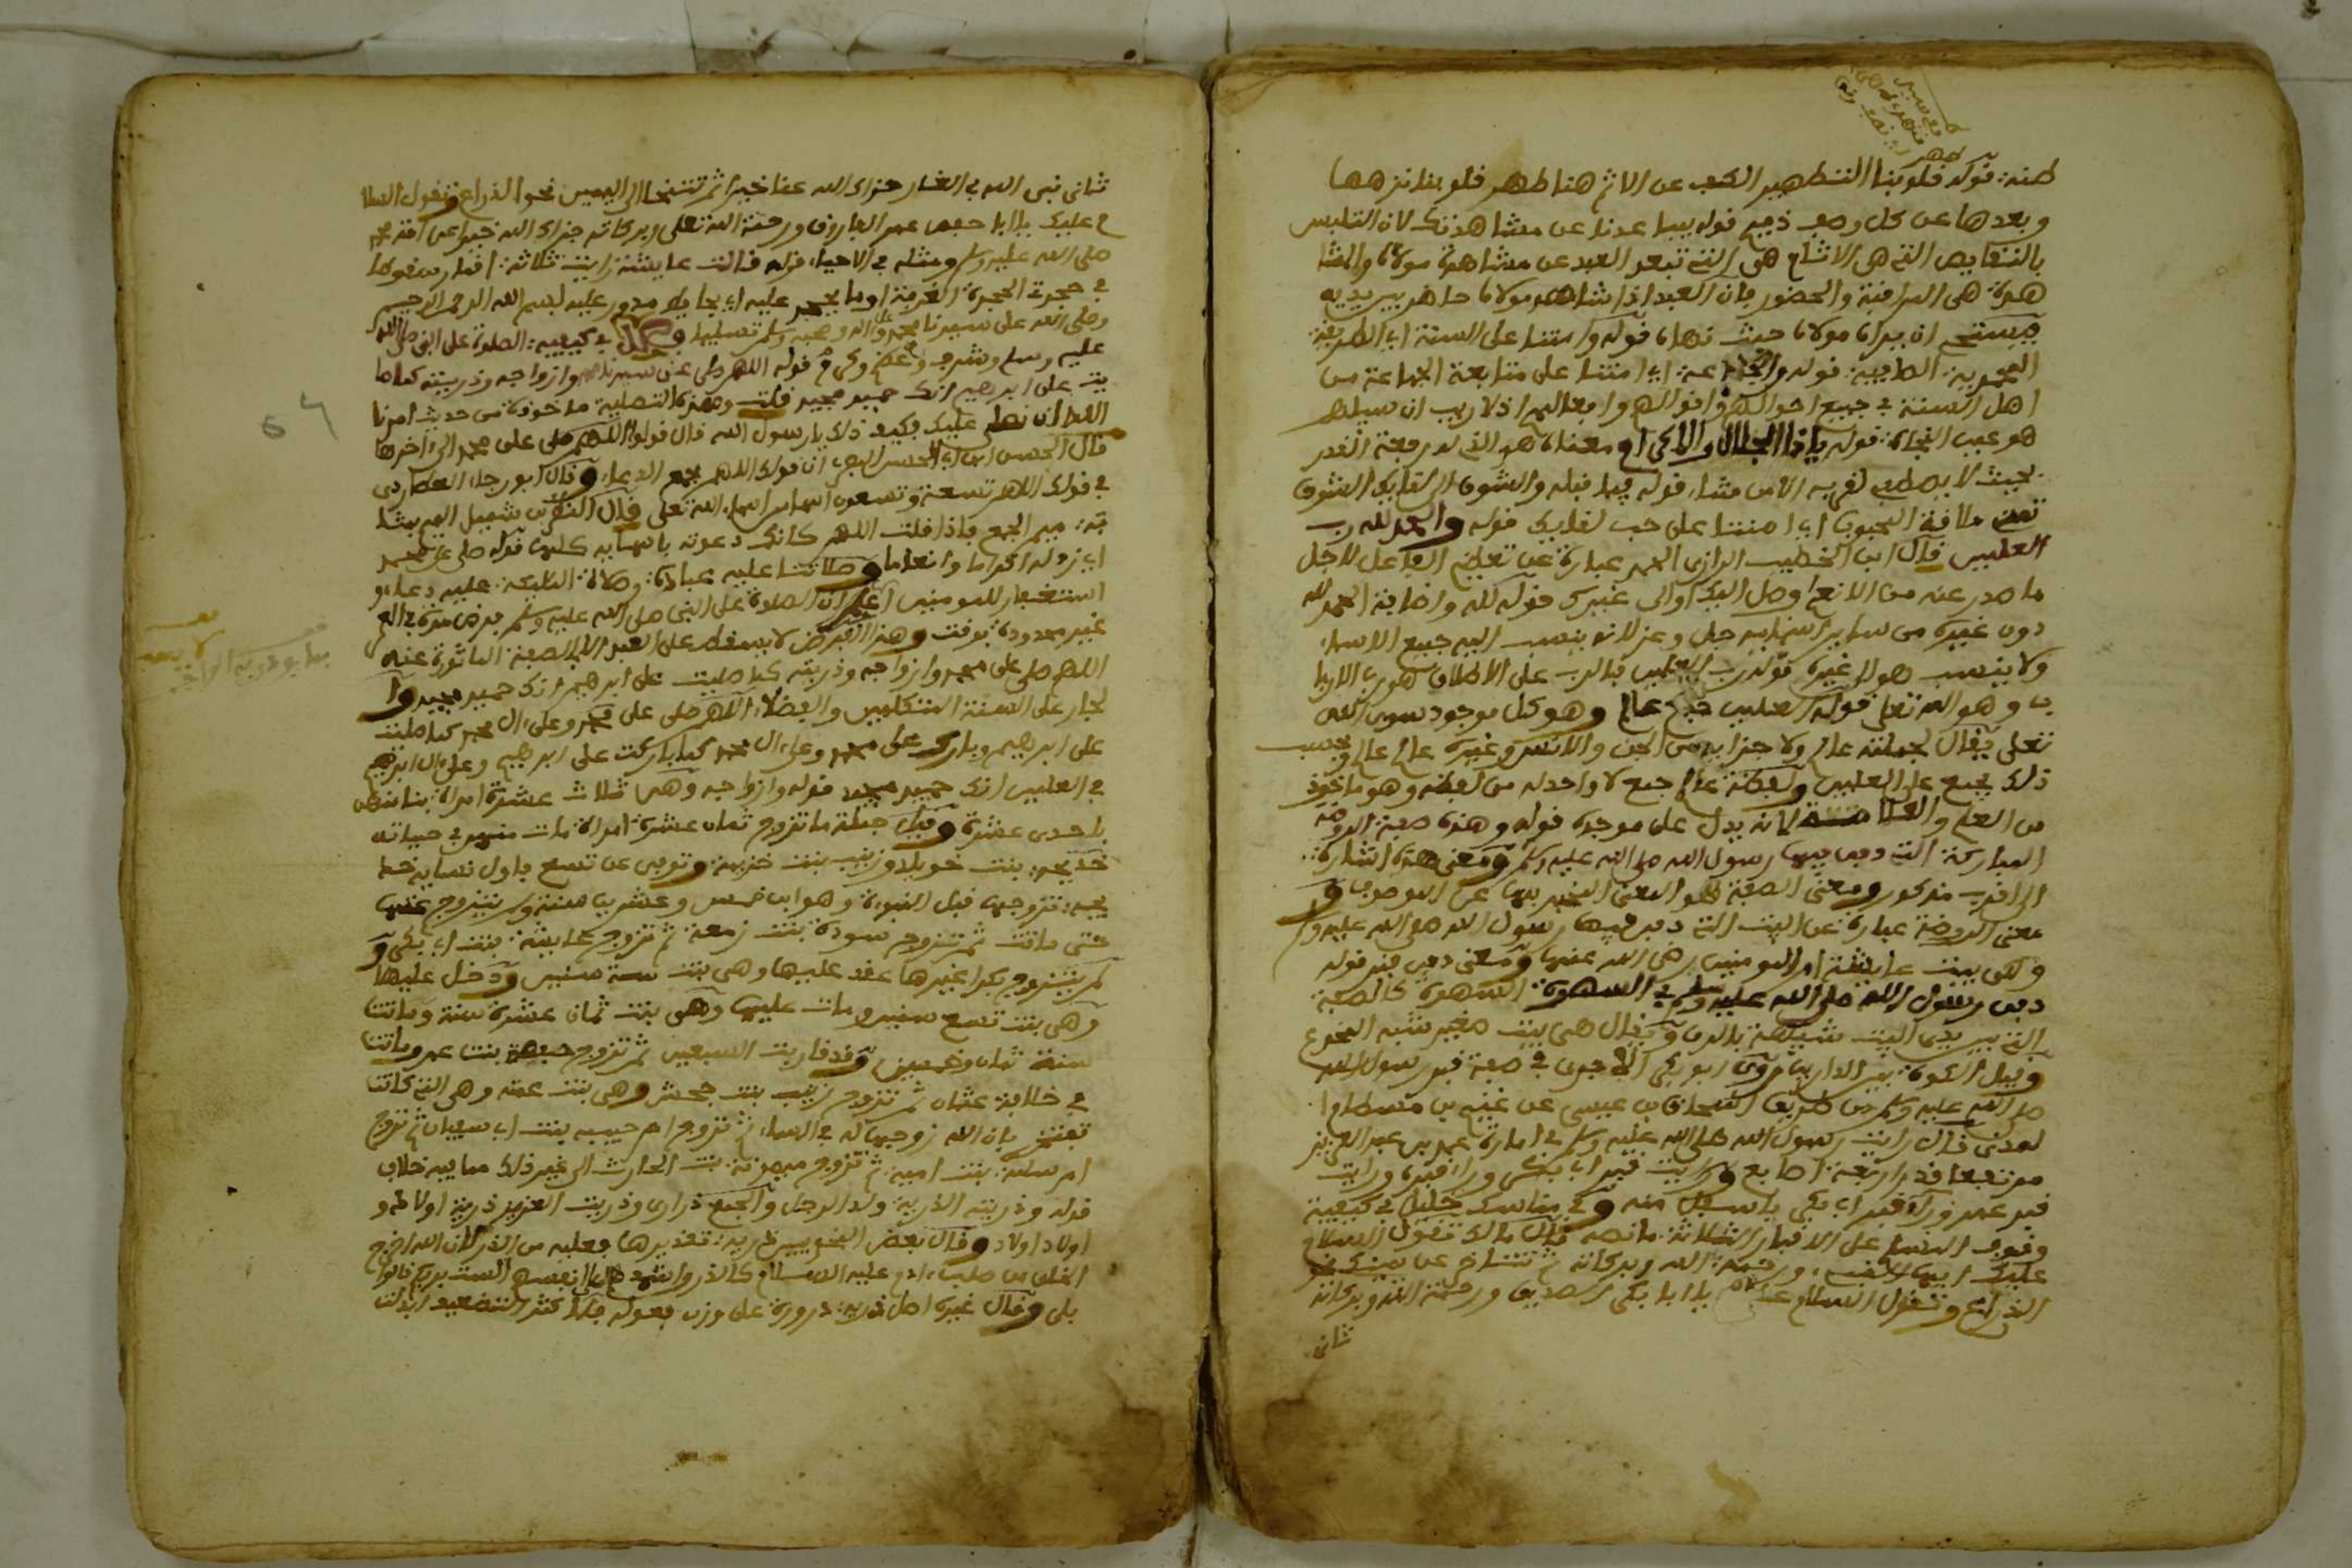 طنه: قوله قلوبنا التطهير الكف عن الاثم هنا طهر قلوبنا نزهها
وبعدها عن كل وصف ذميم قوله يباعدنا عن مشاهدتك لان التلبس
بالنقايص التي هي الاثام هي التي تبعد العبد عن مشاهدة مولاه والمشا
هدة هي المراقبة والحضور فان العبد اذا شاهد مولاه حاضر بين يديه
فيستحي ان يراه مولاه حيث نهاه قوله وامتنا على السنة اي الطريقة
المحمدية: الطيبة: قوله والجماعة: اي امتنا على متابعة الجماعة من
اهل السنة في جميع احوالهم واقوالهم وافعالهم اذ لا ريب ان سبيلهم
هو عين النجاة: قوله ياذا الجلال والاكرام معناه هو الذي له رفعة القدر
بحيث لا قوله فيما قبله والشوق الى لقايك الشوق
ملاقة المحبوب اي امتنا على حب لقايك قوله والحمد لله رب
العلمين قال ابن الخطيب الرازي الحمد عبارة عن تعظيم الفاعل لاجل
ما صدر عنه من الانعام وصل اليك او الى غيرك قوله لله واضافة الحمد لله
دون غيره من ساير اسمايه جل وعز لانه ينسب اليه جميع الاسماء
ولا ينسب هو الى غيره قوله رب العلمين فالرب على الاطلاق هو رب الاربا
ب وهو الله تعلى قوله العلمين جمع عالم وهو كل موجود سوى الله
تعلى يقال لجملته عالم ولاجزايه من الجن والانس وغيره عالم عالم وبحسب
ذلك يجمع على العلمين ولفظة عالم جمع لا واحد له من لفظه وهو ماخوذ
من العلم والعلامة لانه يدل على موجده قوله وهذه صفة الروضة
المباركة: التي دفن فيها رسول الله صلى الله عليه وسلم ومعنى هذه اشارة:
الى اقرب مذكور ومعنى الصفة هو المعنى المخبر بها عن الموصوف و
معنى الروضة عبارة عن البيت التي دفن فيها رسول الله صلى الله عليه وسلم
وهي بيت عايشة ام المومنين رضي الله عنها ومعنى دفن قبر قوله
دفن رسول الله صلى الله عليه وسلم في السهوة: السهوة كالصفة
التي بين يدي البيت شبيهة بالرف ويقال هي بيت صغير شبه المخدع
وقيل الكوة: بين الدارين وروى ابو بكر الاجري في صفة قبر رسول الله
صلى الله عليه وسلم من طريق اسحاق بن عيسى عن غنيم بن بسطام ا
لمدني قال رايت رسول الله صلى الله عليه وسلم في امارة عمر بن عبد العزيز
مرتفعا قدر اربعة: اصابع ورايت قبر ابي بكر وراء قبره ورايت
قبر عمر وراء قبر ابي بكر باسفل منه وفي مناسك خليل في كيفية
وقوف المسلم على الاقبار الثلاثة: ما نصه قال مالك تقول السلام
عليك ايها النبيء ورحمة: الله وبركاته ثم تتناخر عن يمينك نحو
الذراع وتقول السلام عليك يا ابا بكر الصديق ورحمة الله وبركاته
ثاني
ثاني نبي الله في الغار جزاك الله عنا خيرا ثم تتنحا الى اليمين نحو الذراع وتقول السلا
م عليك يا ابا حفص عمر الفاروق ورحمة الله تعلى وبركاته جزاك الله خيرا عن امة محمد
صلى الله عليه وسلم ومثله في الاحياء قوله قالت عايشة رايت ثلاثة: اقمار سقوطا
في حجرتي الحجرة: الغرفة او ما يحجر عليه اي بحايط مدور عليه بسم الله الرحمن الرحيم
وصلى الله على سيدنا محمد واله وصحبه وسلم تسليما فصل في كيفية: الصلاة على النبي صلى الله
عليه وسلم وشرف وعظم وكرم قوله اللهم صلي على سيدنا محمد وازواجه وذريته كما صا
يت على ابرهيم انك حميد مجيد قلت وهذه التصلية ماخوذة من حديث امرنا
الله ان نصلي عليك فكيف ذلك يا رسول الله قال قولوا اللهم صلي على محمد الى اخرها
قال الحسن ابن ابي الحسن البصري ان قولك اللهم مجمع الدعاء وقال ابو رجاء العطاردي
في قولك اللهم تسعة وتسعون اسما من اسماء الله تعلى قال النضر بن شميل الميم بمثا
بة: ميم الجمع فاذا قلت اللهم كانك دعوته باسمايه كلها قوله صلي على محمد
اي زد له اكراما وانعاما وصلاتنا عليه عبادة: وصلاة الملايكة: عليه دعاء و
استغفار للمومنين اعلم ان الصلاة على النبي صلى الله عليه وسلم فرض مرة في العمر
غير محدودة بوقت وهذا الفرض لا يسقط على العبد الا بالصفة الماثورة عنه
اللهم صلي على محمد وازواجه وذريته كما صليت على ابرهيم انك حميد مجيد وا
لجار على السنة المتكلمين والفضلاء اللهم صلى على محمد وعلى ال محمد كما صليت
على ابرهيم وبارك على محمد وعلى ال محمد كما باركت على ابرهيم وعلى ال ابرهيم
في العلمين انك حميد مجيد قوله وازواجه وهن ثلاث عشرة امراة: بنا منهن
باحدى عشرة وقيل جملة ما تزوج ثمان عشرة امراة: مات منهن في حياته
خديجة: بنت خويلد وزينب بنت خزيمة: وتوفي عن تسع فاول نسايه خد
يجة: تزوجها قبل النبوءة وهو ابن خمس وعشرين سنة ولم يتزوج عنها
حتى ماتت ثم تزوج سودة بنت زمعة: ثم تزوج عايشة: بنت ابي بكر و
لم يتزوج بكرا غيرها عقد عليها وهي بنت ستة سنين ودخل عليها
وهي بنت تسع سنين ومات عليها وهي بنت ثمان عشرة سنة وماتت
سنة ثمان وخمسين وقد قاربت السبعين ثم تزوج حفصة بنت عمر وماتت
في خلافة: عثمان ثم تزوج زينب بنت جحش وهي بنت عمته وهي التي كانت
تفتخر بان الله زوجها له في السماء ثم تزوج ام حبيبة بنت ابي سفيان ثم تزوج
ام سلمة: بنت امية: ثم تزوج ميمونة: بنت الحارث الى غير ذلك مما فيه خلاف
قوله وذريته الذرية: ولد الرجل والجمع ذراري وذريت العزيز ذرية اولاده و
اولاد اولاد وقال بعض النحويين ذرية: تقديرها فعلية من الذر لان الله اخرج
الخلق من صلب ادم عليه السلام كالذر واشهدهم على انفسهم الست بربكم قالوا
بلى وقال غيره اصل ذرية: ذرورة على وزن فعولة فلما كثر التضعيف ابدلت